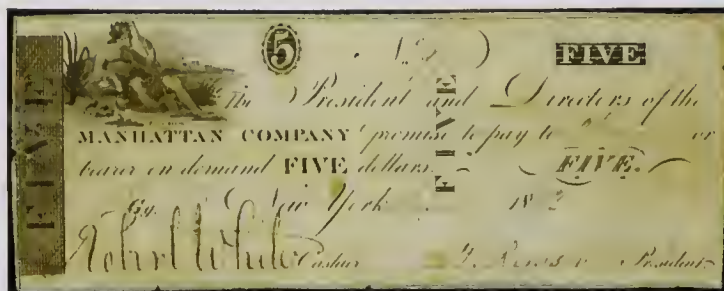 5 FIVE
The President and Directors of the
MANHATTAN COMPANY promise to pay to or
bearer on demand FIVE dollars. FIVE.
New York 18
Robert White Cashier President
FIVE
FIVE